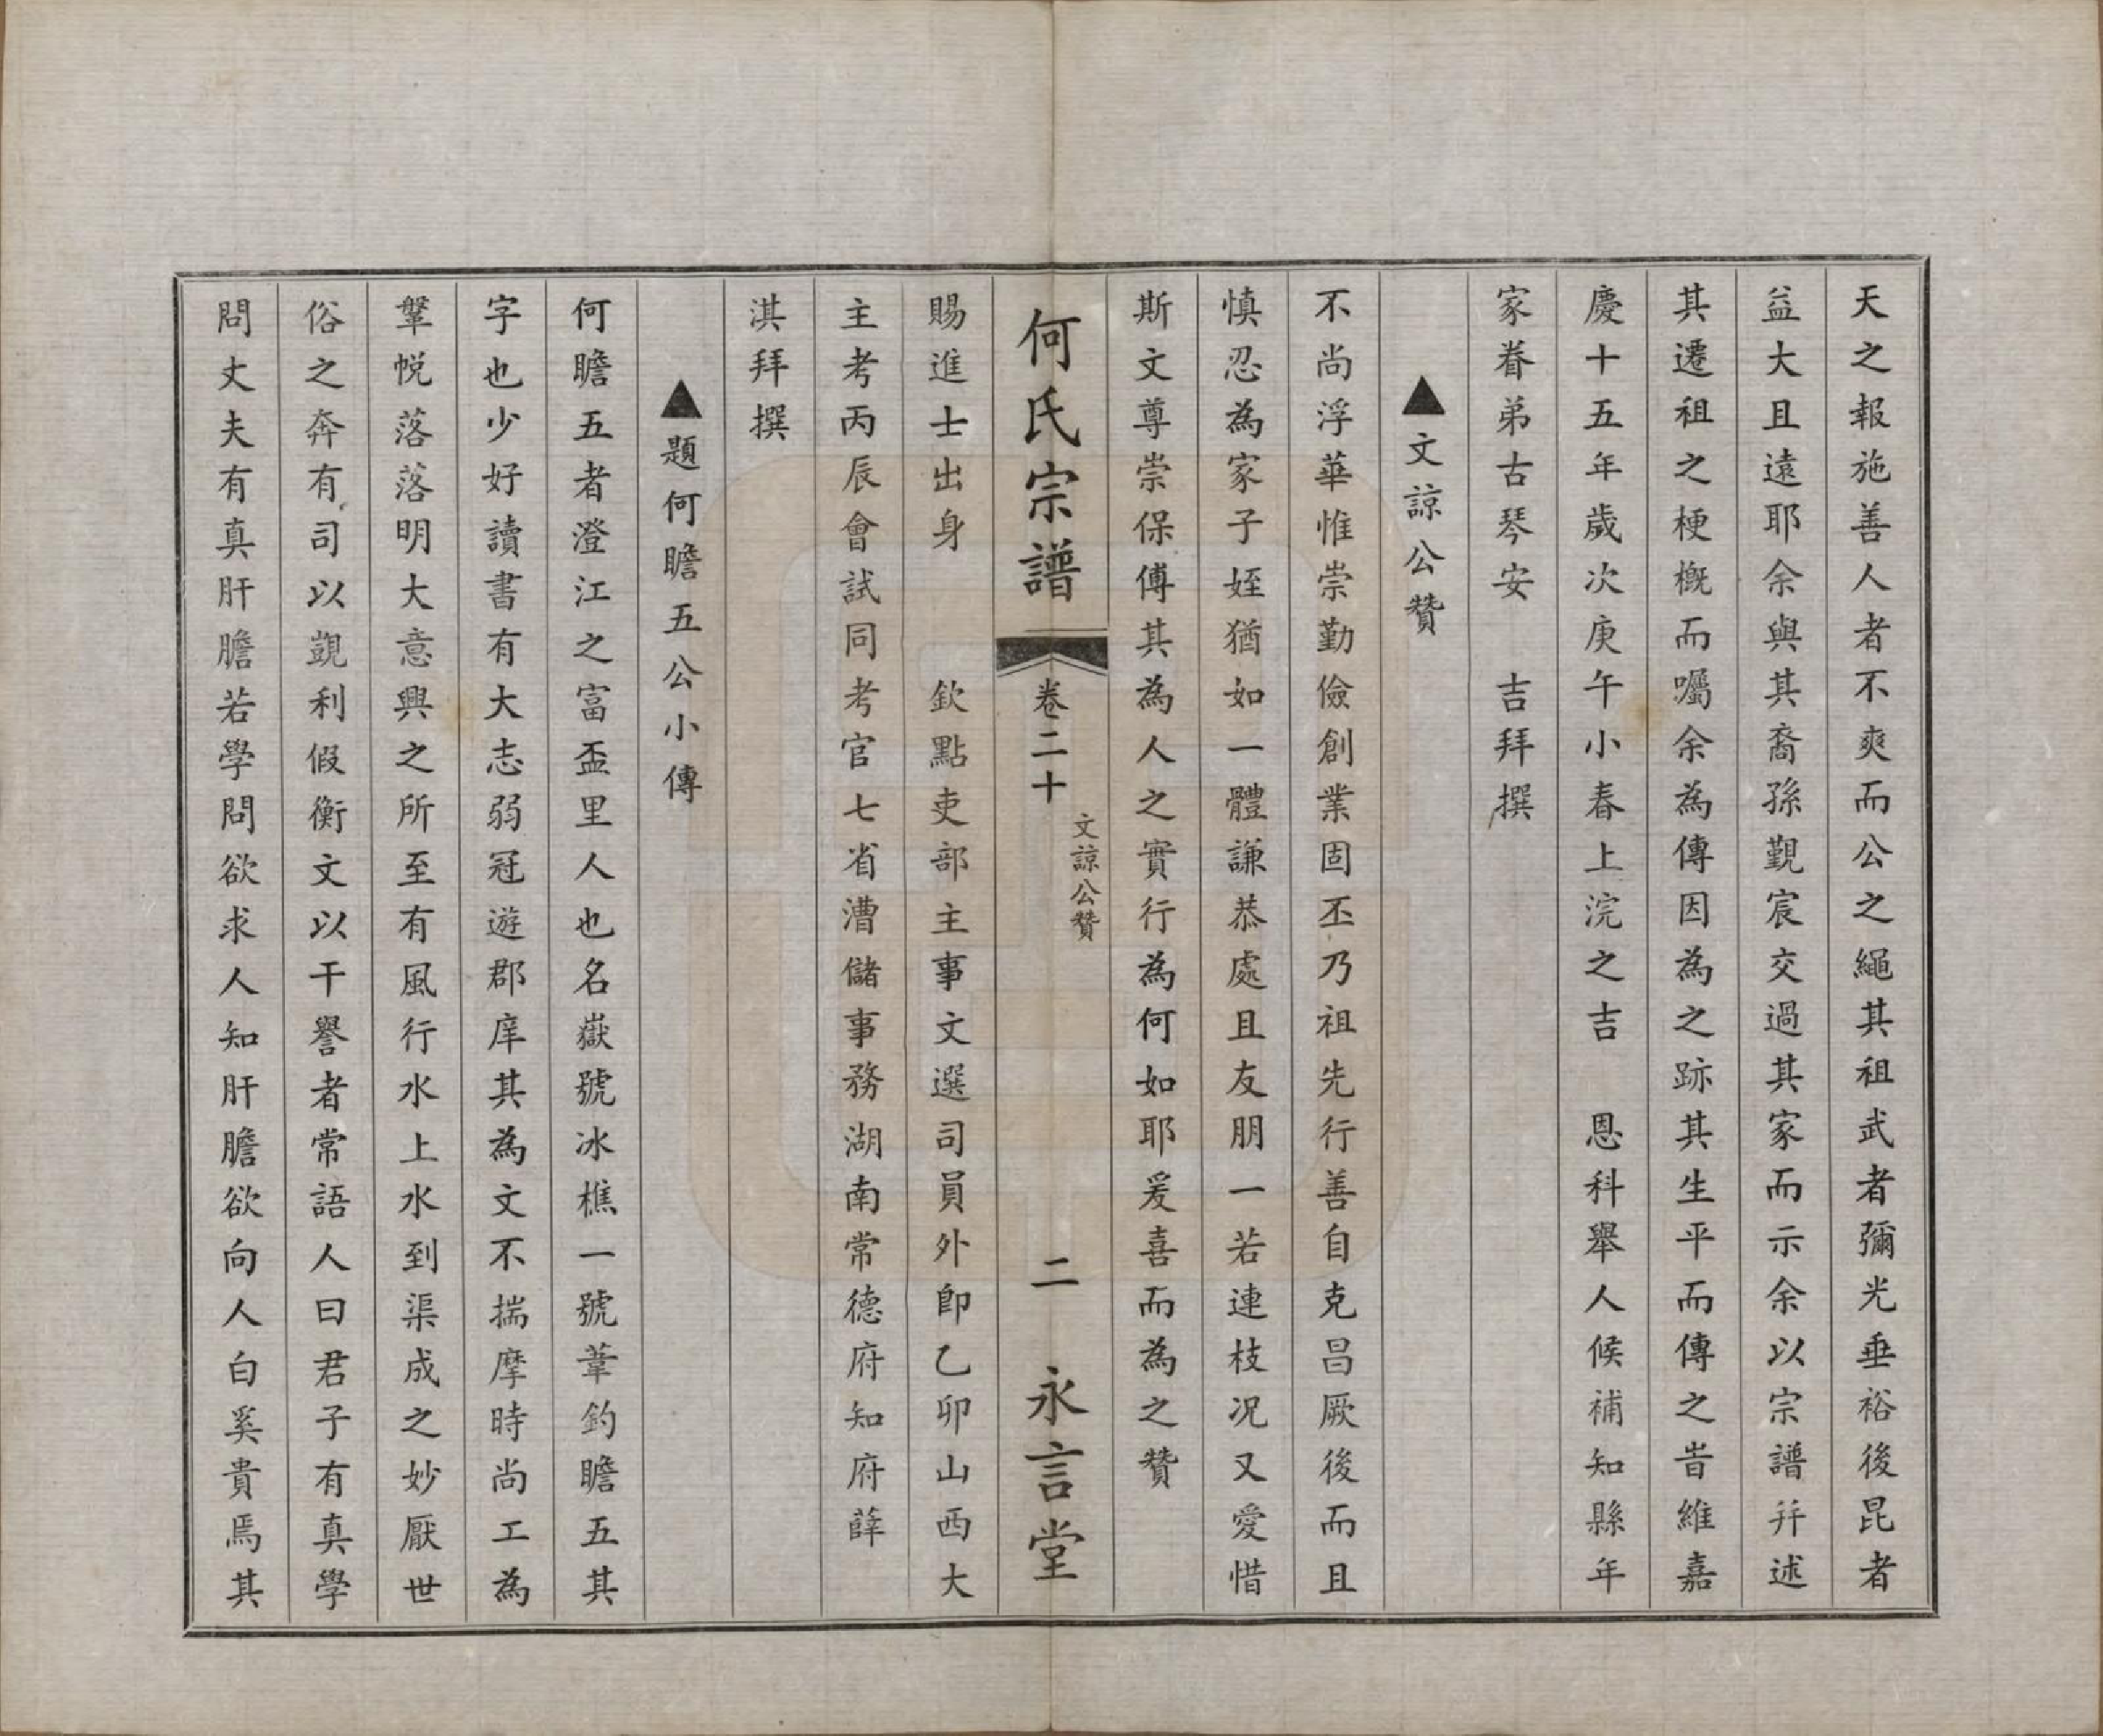 天之報施善人者不爽而公之繩其祖武者彌光垂裕後昆者
益大且遠耶余與其裔孫觐宸交過其家而示余以宗譜幷述
其遷祖之梗概而囑余為傳因為之跡其生平而傳之旹維嘉
慶十五年歲次庚午小春上浣之吉　恩科舉人候補知縣年
家眷弟古琴安　吉拜撰
▲文諒公贊
不尚浮華惟崇勤儉創業固丕乃祖先行善自克昌厥後而且
慎忍為家子姪猶如一體謙恭處且友朋一若連枝况又愛惜
斯文尊崇保傅其為人之實行為何如耶爰喜而為之贊
何氏宗譜　卷二十　文諒公贊　二　永言堂
賜進士出身　欽點吏部主事文選司員外郎乙卯山西大
主考丙辰會試同考官七省漕儲事務湖南常德府知府薛
淇拜撰
▲題何瞻五公小傳
何瞻五者澄江之富盃里人也名嶽號冰樵一號葦釣瞻五其
字也少好讀書有大志弱冠遊郡庠其為文不揣摩時尚工為
鞶帨落落明大意興之所至有風行水上水到渠成之妙厭世
俗之奔有司以覬利假衡文以干譽者常語人曰君子有真學
問丈夫有真肝膽若學問欲求人知肝膽欲向人白奚貴焉其